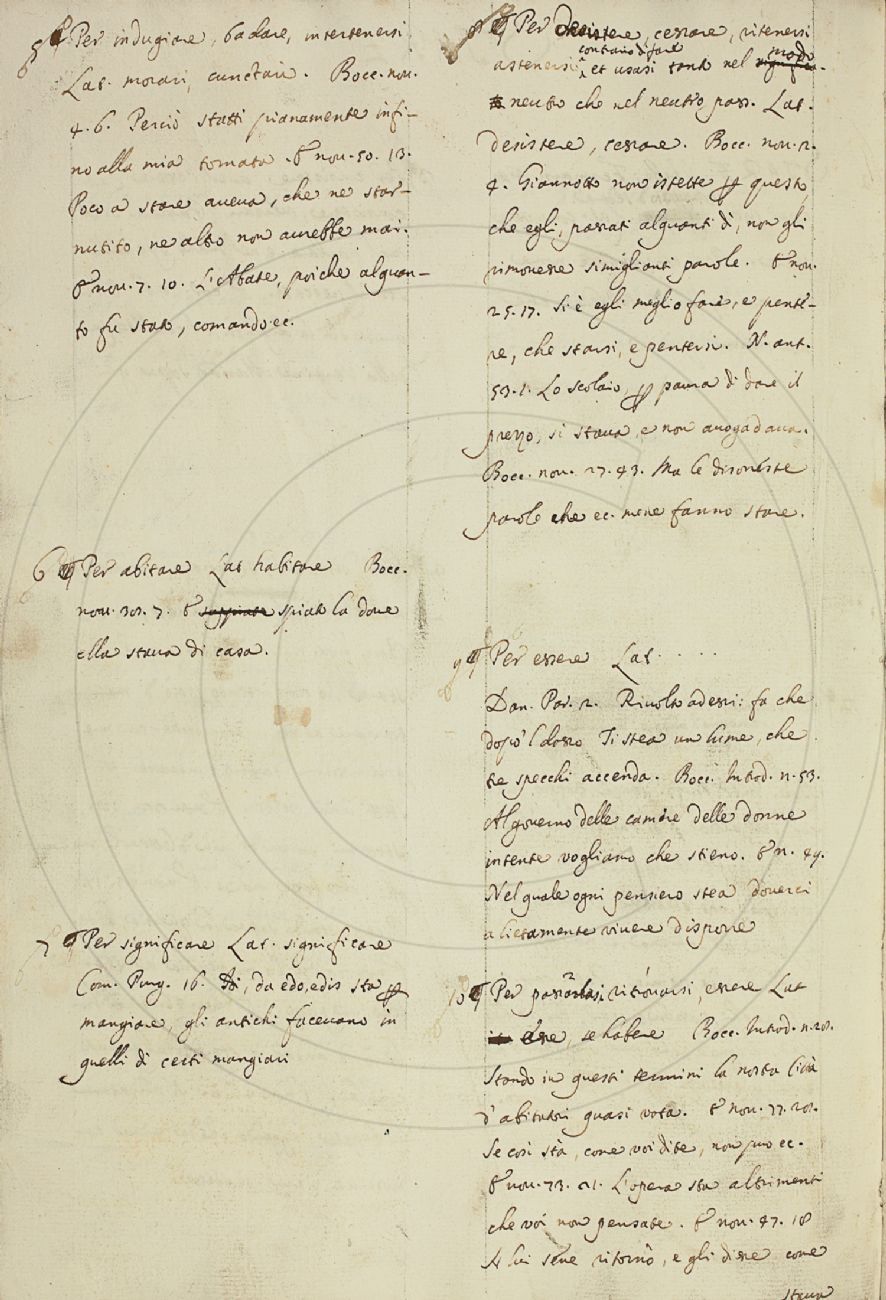 5 ¶ Per indugiare, badare, intertenersi
Lat. morari, cunctari. Bocc. nov.
4. 6. Perciò statti pianamente infi-
no alla mia tornata. E nov. 50. 13.
Poco a stare aueua, che ne star-
nutito, ne altro non aurebbe mai.
E nou. 7. 10. L'Abate, poiche alquan-
to fu stato, comandò ec.
6 ¶ Per abitare Lat habitare Bocc.
nou. 7. E spiato la doue
ella staua di casa.
7 ¶ Per significare Lat. significare
Com. Purg. 16. da edo, edis sta p
mangiare, gli antichi faceuano in
quelli dì certi mangiari
8 ¶ Per Desistere, cessare, ritenersi
contrario di fare
astenersi, et usasi tanto nel modo
neutro che nel neutro pass. Lat.
desistere, cessare. Bocc. nou. 2.
4. Giannotto non istette p questo,
che egli, passati alquanti dì, non gli
rimouesse simiglianti parole. E nou.
25. 17. Si è egli meglio fare, e penté-
re, che starsi, e pentersi. N. ant.
53. 1. Lo scolaio, p paura di dare il
prezzo, si staua, e non auogadaua.
Bocc. nou. 27. 43. Ma le disoneste
parole che ec. mene fanno stare.
9 ¶ Per essere Lat. . . . .
Dan. Par. 2. Riuolto ad essi: fa che
dopo 'l dosso Ti stea un lume, che
tre specchi accenda. Bocc. Introd. n. 53.
Al gouerno delle camere delle donne
intente vogliamo che stieno. E n. 49.
Nel quale ogni pensiero stea douerci
a lietamente viuere disporre
10 ¶ Per passarlasi ritrouarsi, essere Lat
esse, se habere Bocc. Introd. n.
Stando in questi termini la nostra Città
d'abitatori quasi vota. E nou. 77.
Se così stà, come voi dite, non può ec.
E nou. 73. 21. L'opera sta altrimenti
che voi non pensate. E nou. 47. 18
A lui sene ritornò, e gli disse come
staua